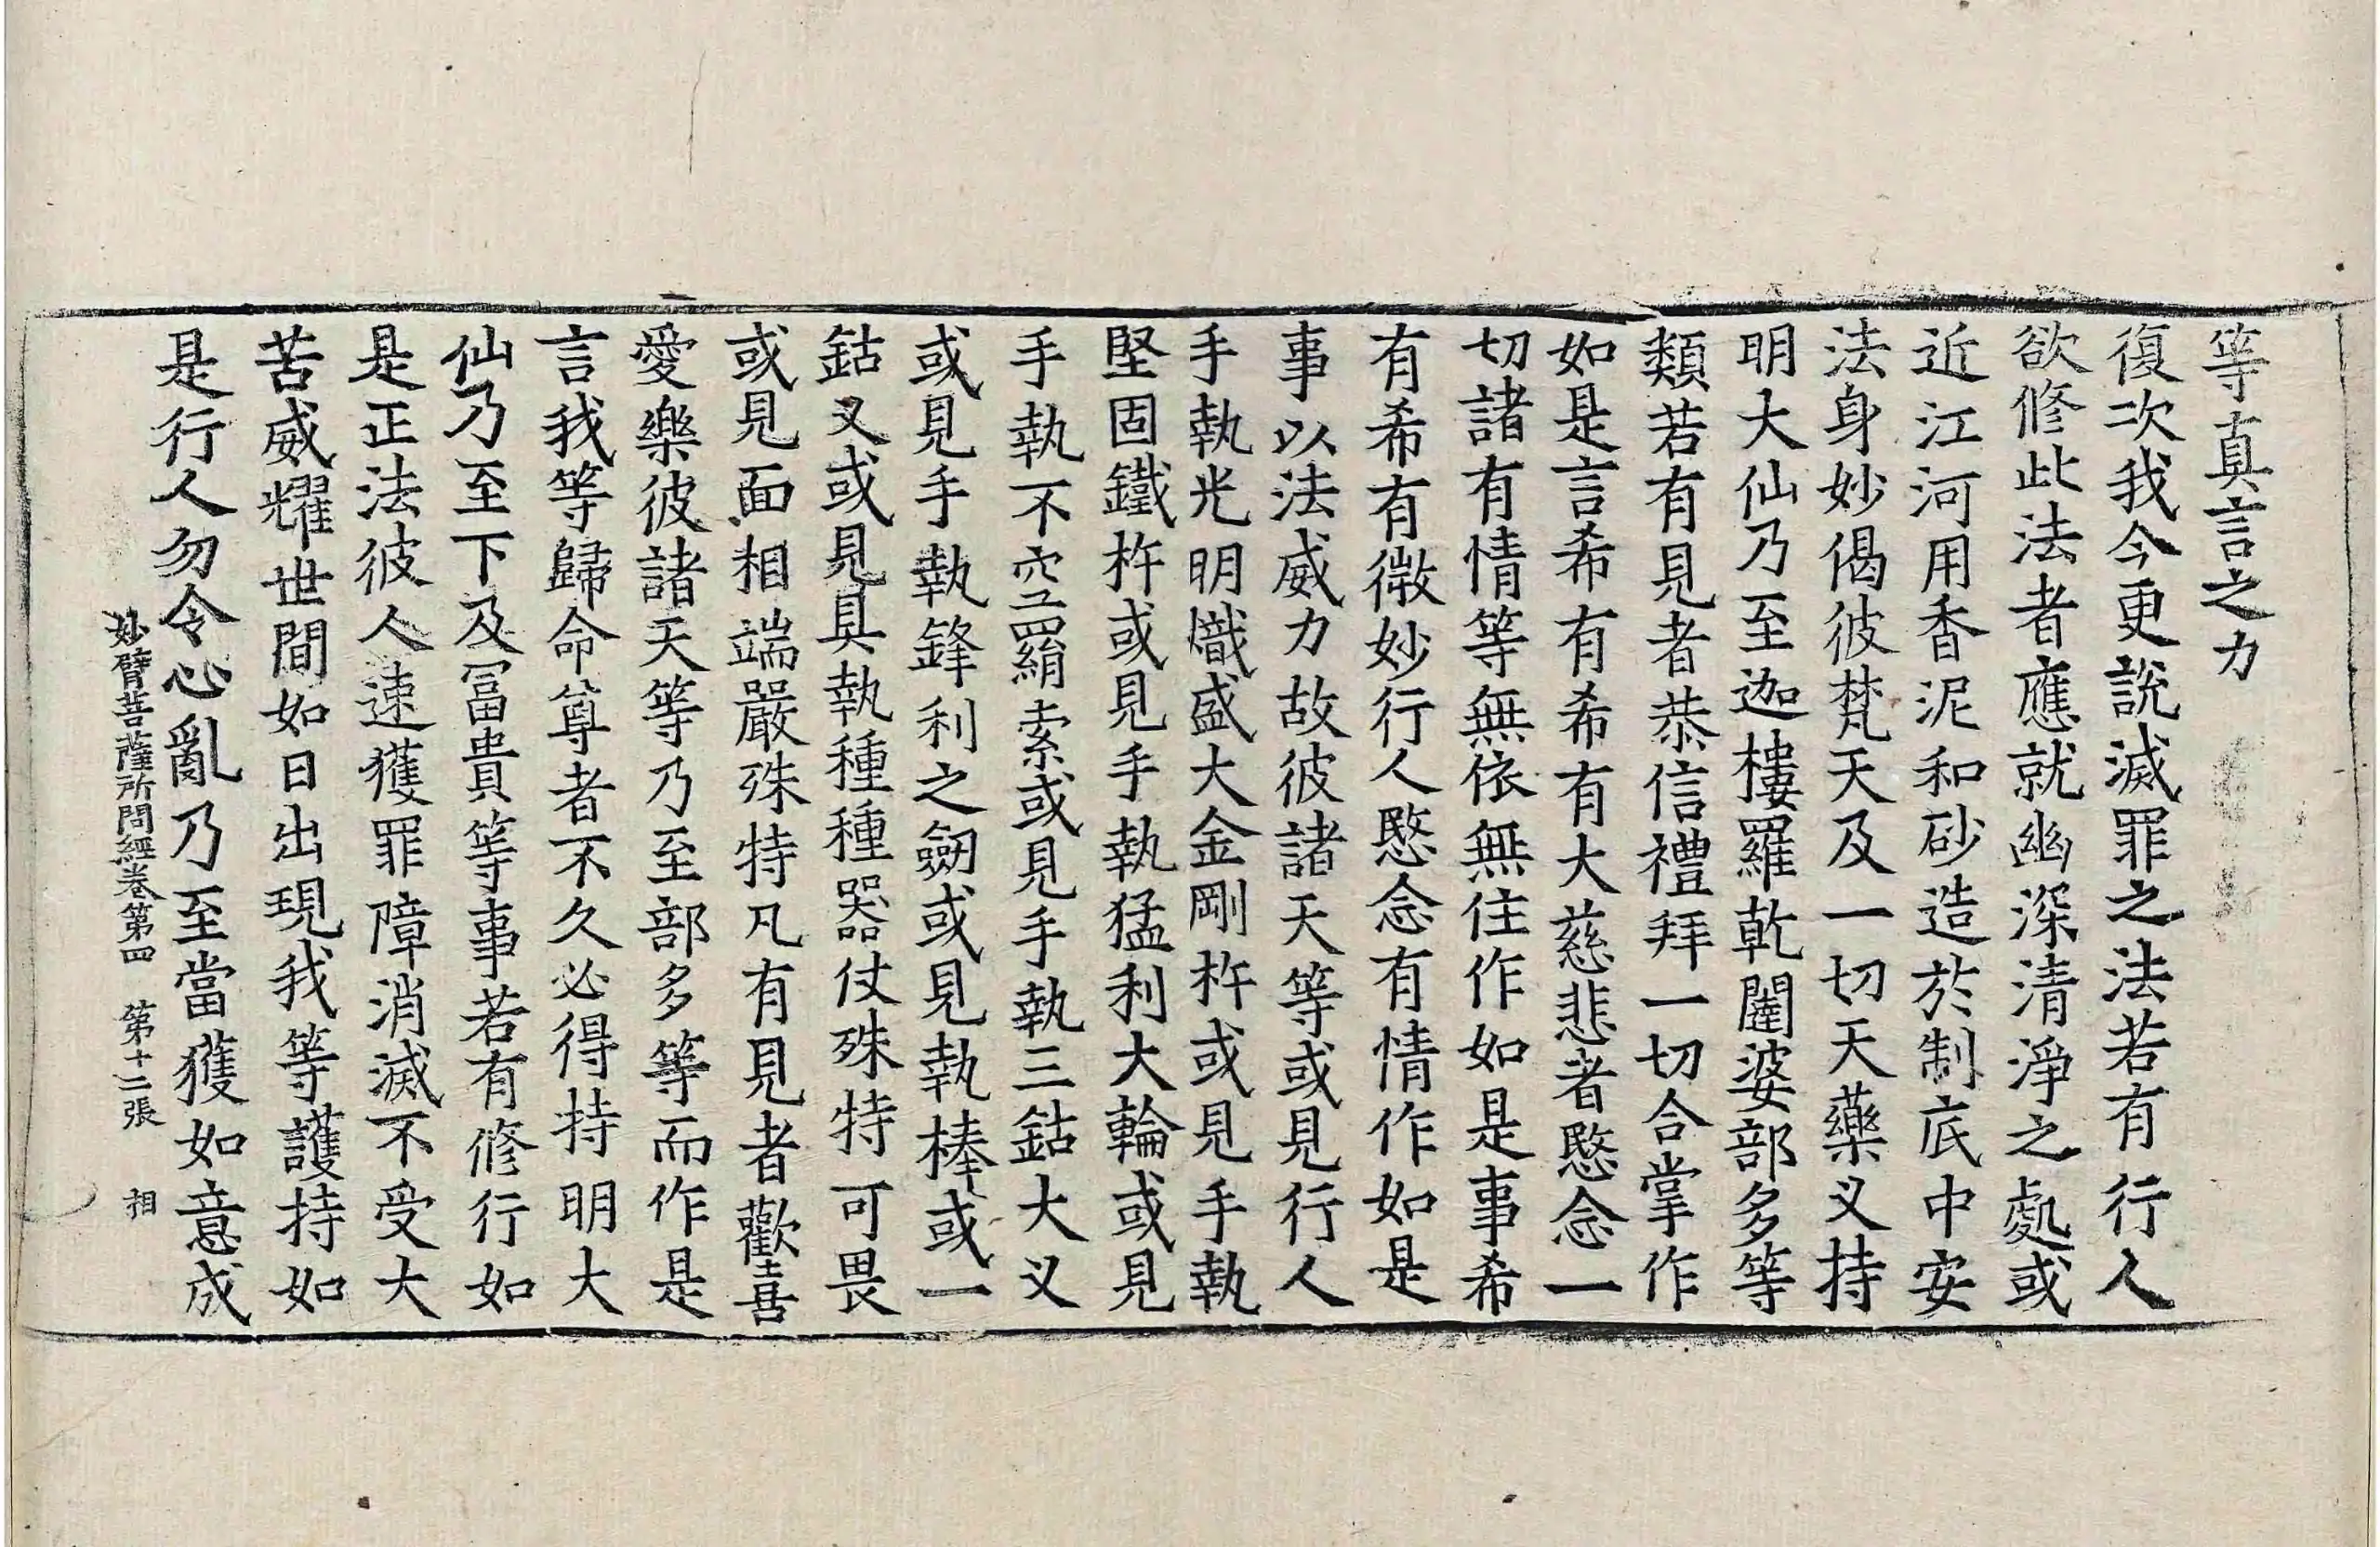 等真言之力
復次我今更說滅罪之法若有行人
欲修此法者應就幽深清淨之處或
近江河用香泥和砂造於制底中安
法身妙偈彼梵天及一切天藥叉持
明大仙乃至迦樓羅乾闥婆部多等
類若有見者恭信禮拜一切合掌作
如是言希有希有大慈悲者愍念一
切諸有情等無依無住作如是事希
有希有微妙行人愍念有情作如是
事以法威力故彼諸天等或見行人
手執光明熾盛大金剛杵或見手執
堅固鐵杵或見手執猛利大輪或見
手執不空羂索或見手執三鈷大叉
或見手執鋒利之劒或見執棒或一
鈷叉或見具執種種器仗殊特可畏
或見面相端嚴殊特凡有見者歡喜
愛樂彼諸天等乃至部多等而作是
言我等歸命尊者不久必得持明大
仙乃至下及冨貴等事若有修行如
是正法彼人速獲罪障消滅不受大
苦威耀世間如日出現我等護持如
是行人勿令心亂乃至當獲如意成
妙臂菩薩所問經卷第四 第十二張 相